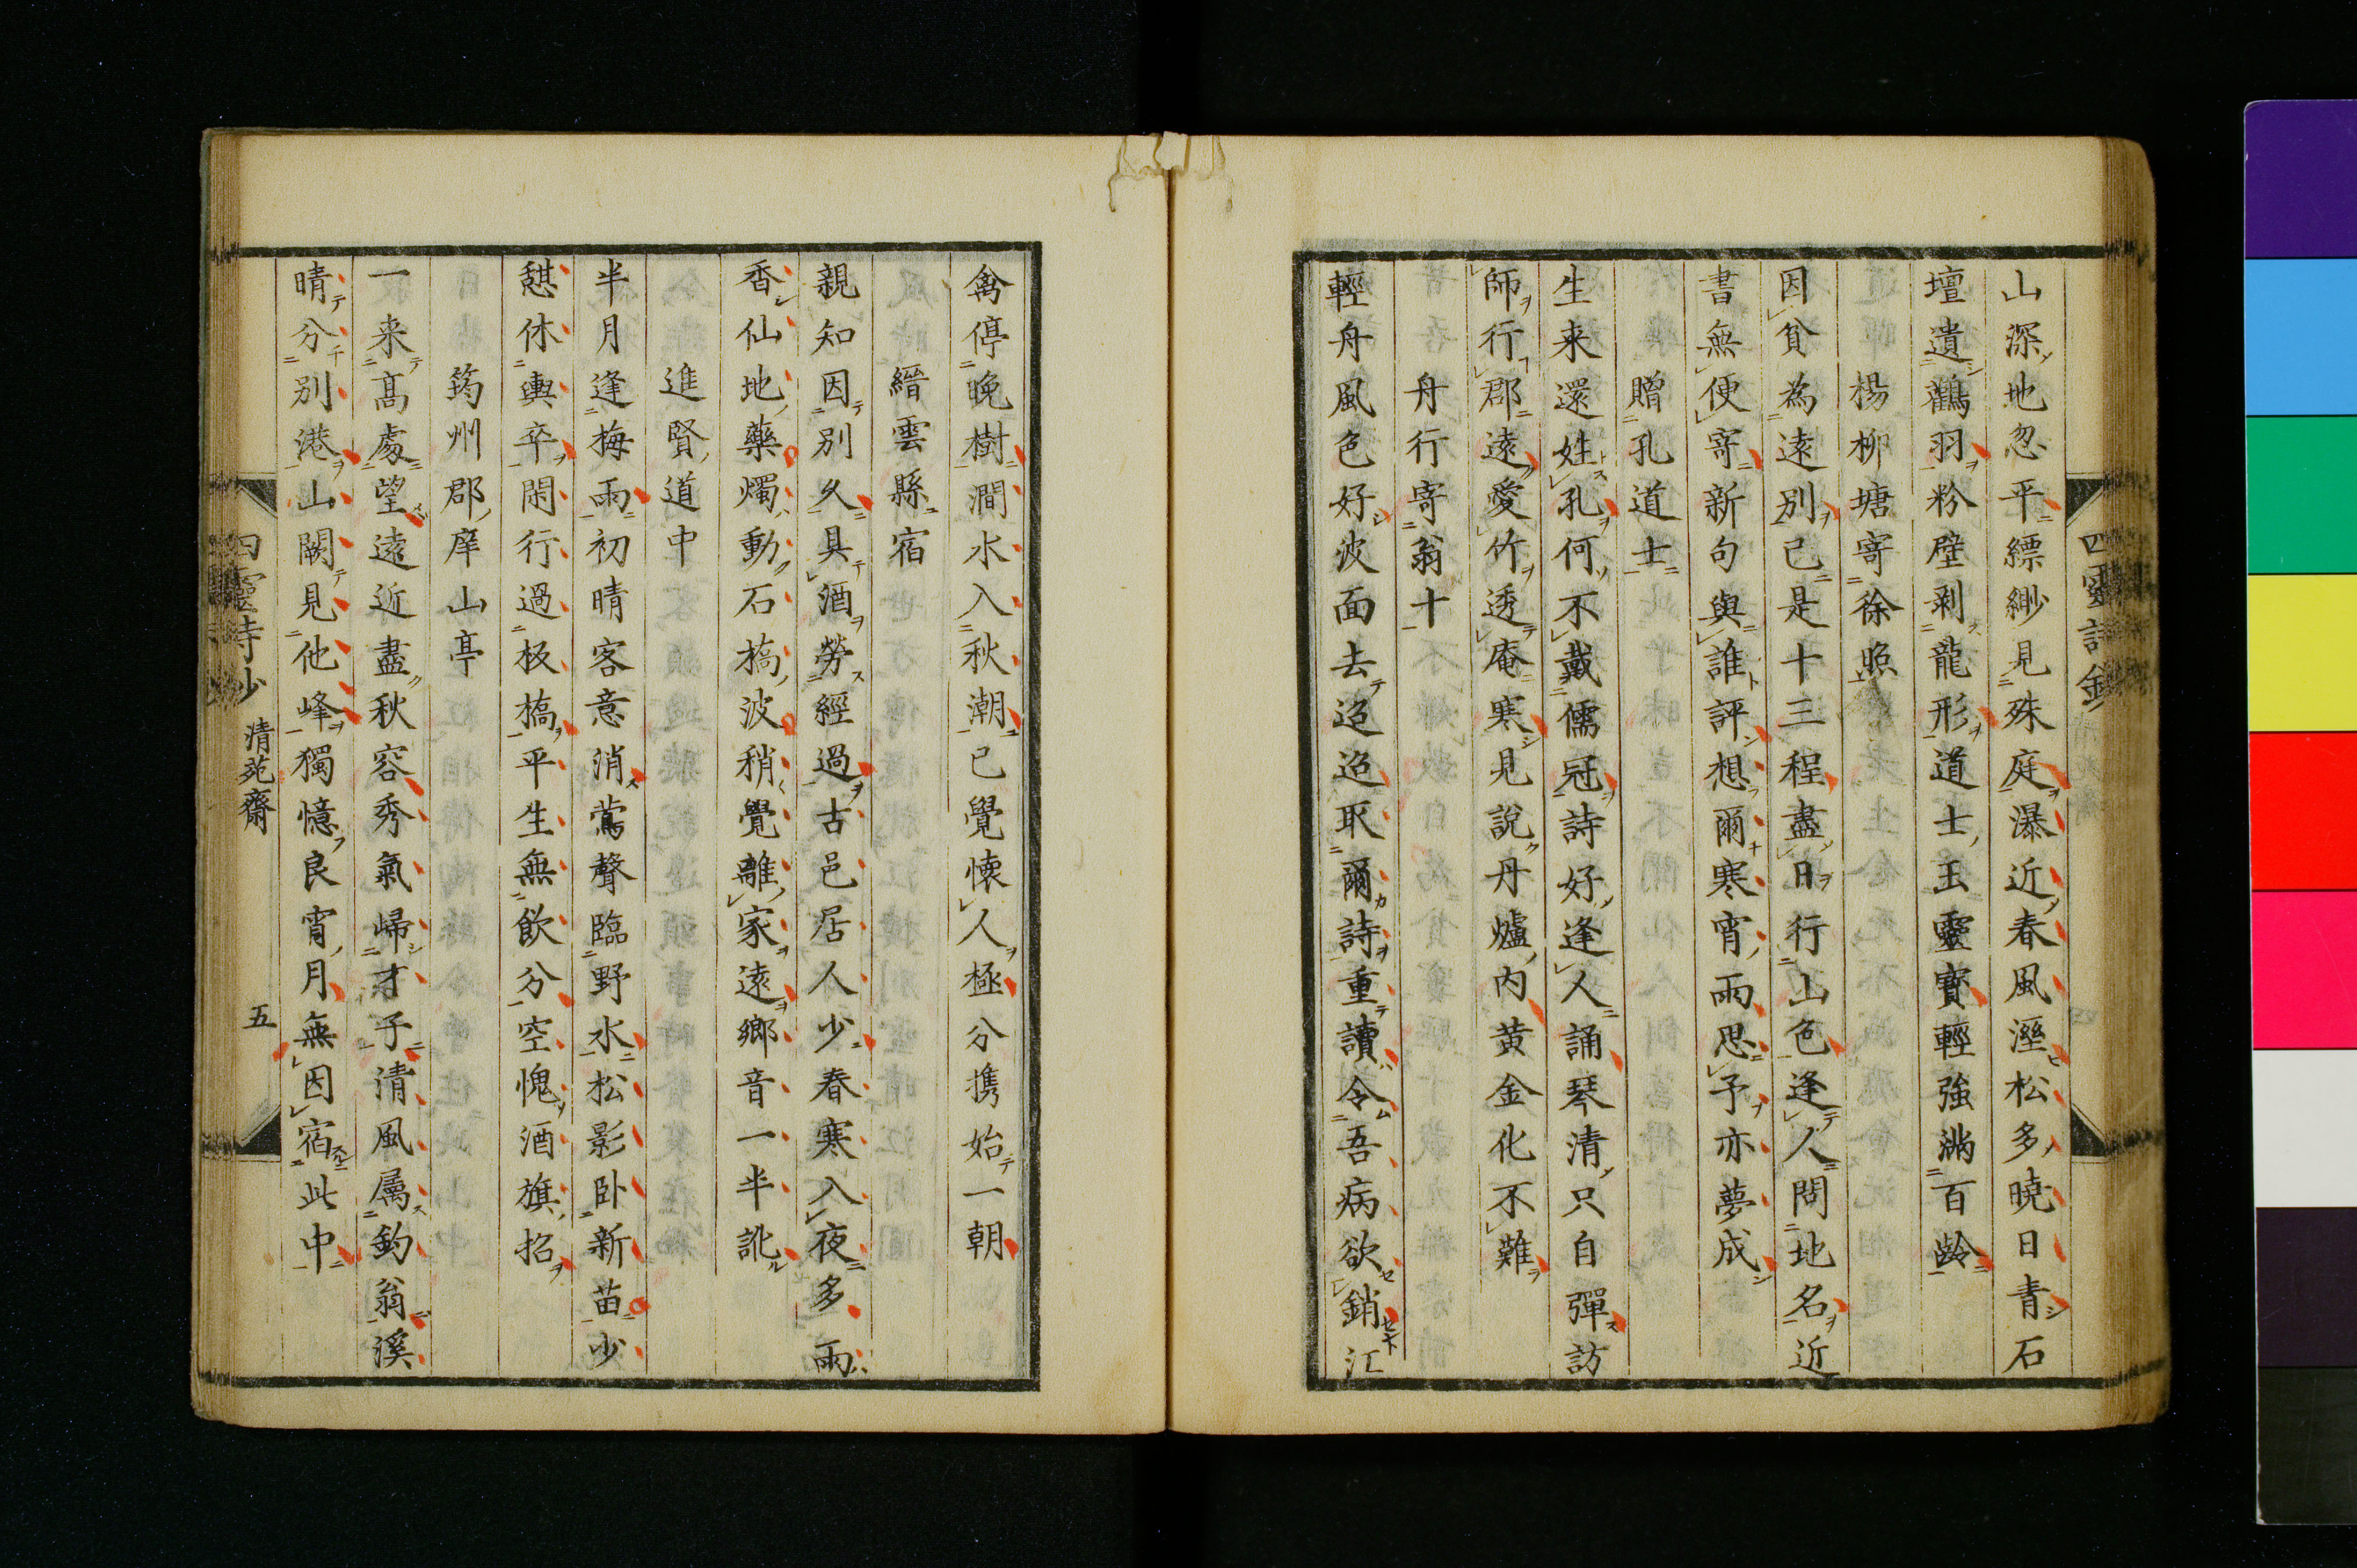 山深地忽平縹緲見殊庭瀑近春風溼松多曉日青石
壇遺鸛羽粉壁剥龍形道士玉靈寶輕強滿百齡
楊柳塘寄徐照
因貧為遠別已是十三程盡日行山色逢人問地名近
書無便寄新句與誰評想爾寒宵雨思予亦夢成
贈孔道士
生来還姓孔何不戴儒冠詩好逢人誦琴清只自彈訪
師行郡遠愛竹透庵寒見說丹爐內黄金化不難
舟行寄翁十
輕舟風色好波面去迢迢取爾詩重讀令吾病欲銷江
禽停晚樹澗水入秋潮已覺懐人極分携始一朝
縉雲縣宿
親知因別久具酒勞經過古邑居人少春寒入夜多雨
香仙地藥燭動石橋波稍覺離家遠鄉音一半訛
進賢道中
半月逢梅雨初晴客意消鶯聲臨野水松影卧新苗少
憇休輿卒閑行過板橋平生無飲分空愧酒旗招
筠州郡庠山亭
一来髙處望遠近盡秋容秀氣歸才子清風属釣翁溪
晴分別港山闕見他峰獨憶良宵月無因宿此中
四靈詩鈔
四靈詩少
清苑齋
五